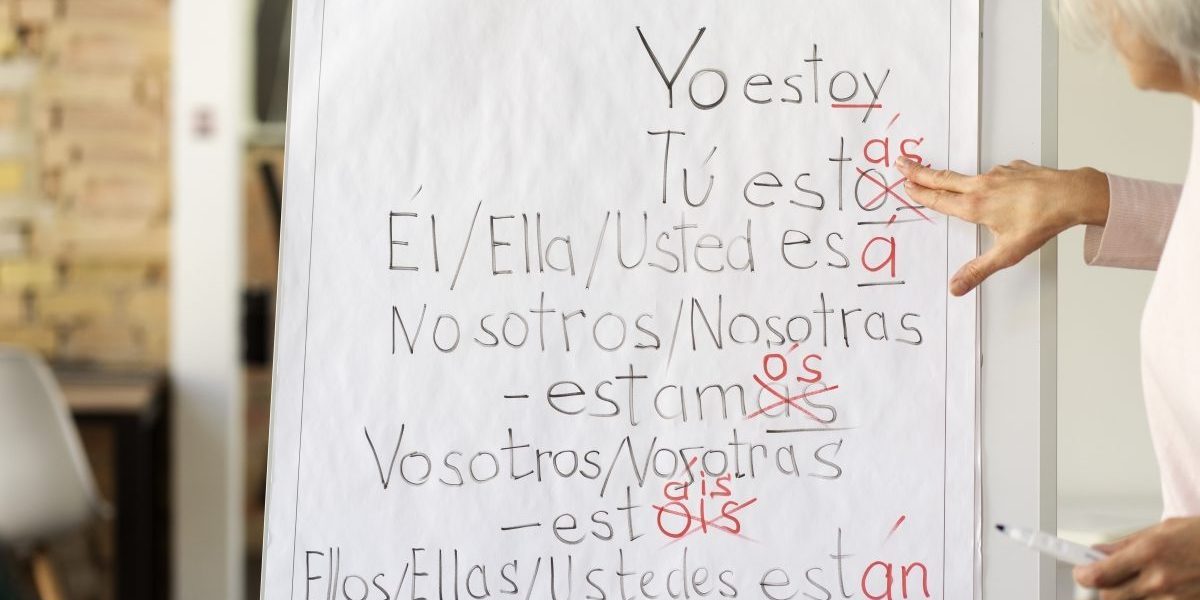 Yo estoy
ás
Tú estos
Él/Ella/Usted esá
Nosotros/Nosotras
ós
-estamas
Vosotros/Nosotras
áis
-estois
Ellos/Ellas/Ustedes están